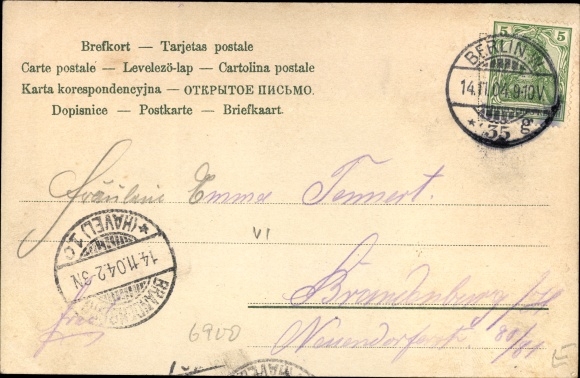 Brefkort — Tarjetas postale
Carte postale — Levelező-lap — Cartolina postale
Karta korespondencyjna — ОТКРЫТОЕ ПИСЬМО.
Dopisnice — Postkarte — Briefkaart.
5 5
BERLIN W.
14.11.04.9-10V.
* 35 g
Fräulein Emma Tennert.
VI
* (HAVEL) 1 o
14.11.04.2-3N
BRANDENBURG
frei
Brandenburg a/H
Neuendorferstr 80/81
6900
E
(HAVEL)